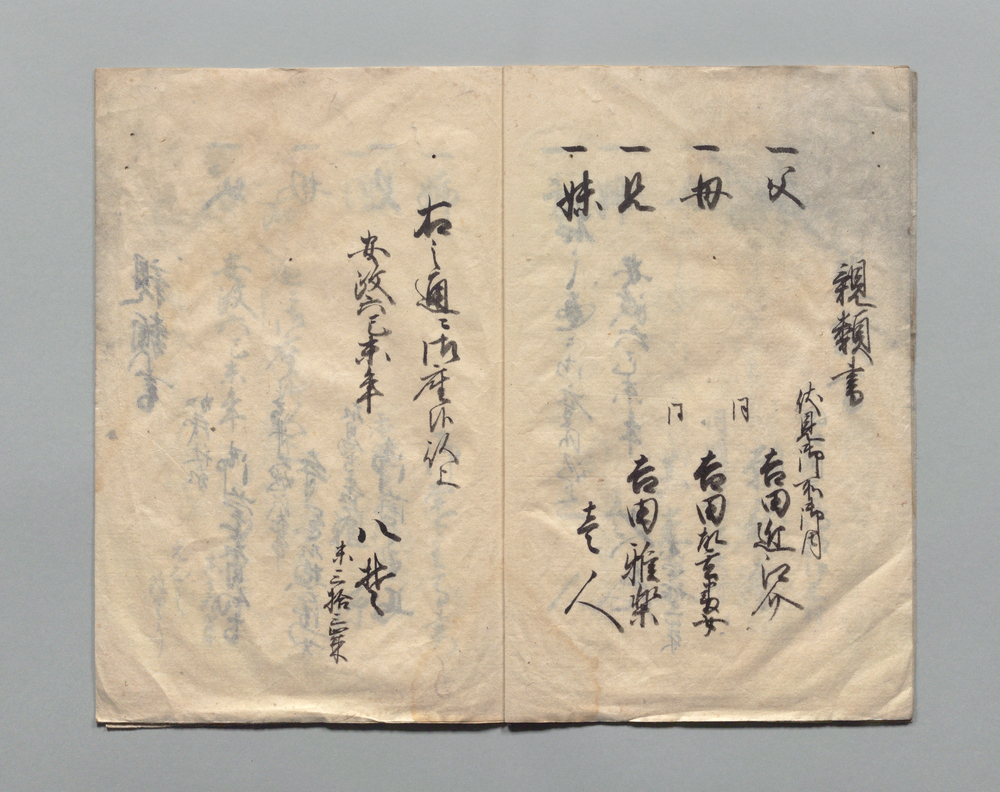 親類書
伏見御所御内
一父 吉田近江介
一母 同 吉田
一兄 同 吉田雅楽
一妹 壱人
右之通ニ御座候以上
安政六己未年
八
未三拾三歳